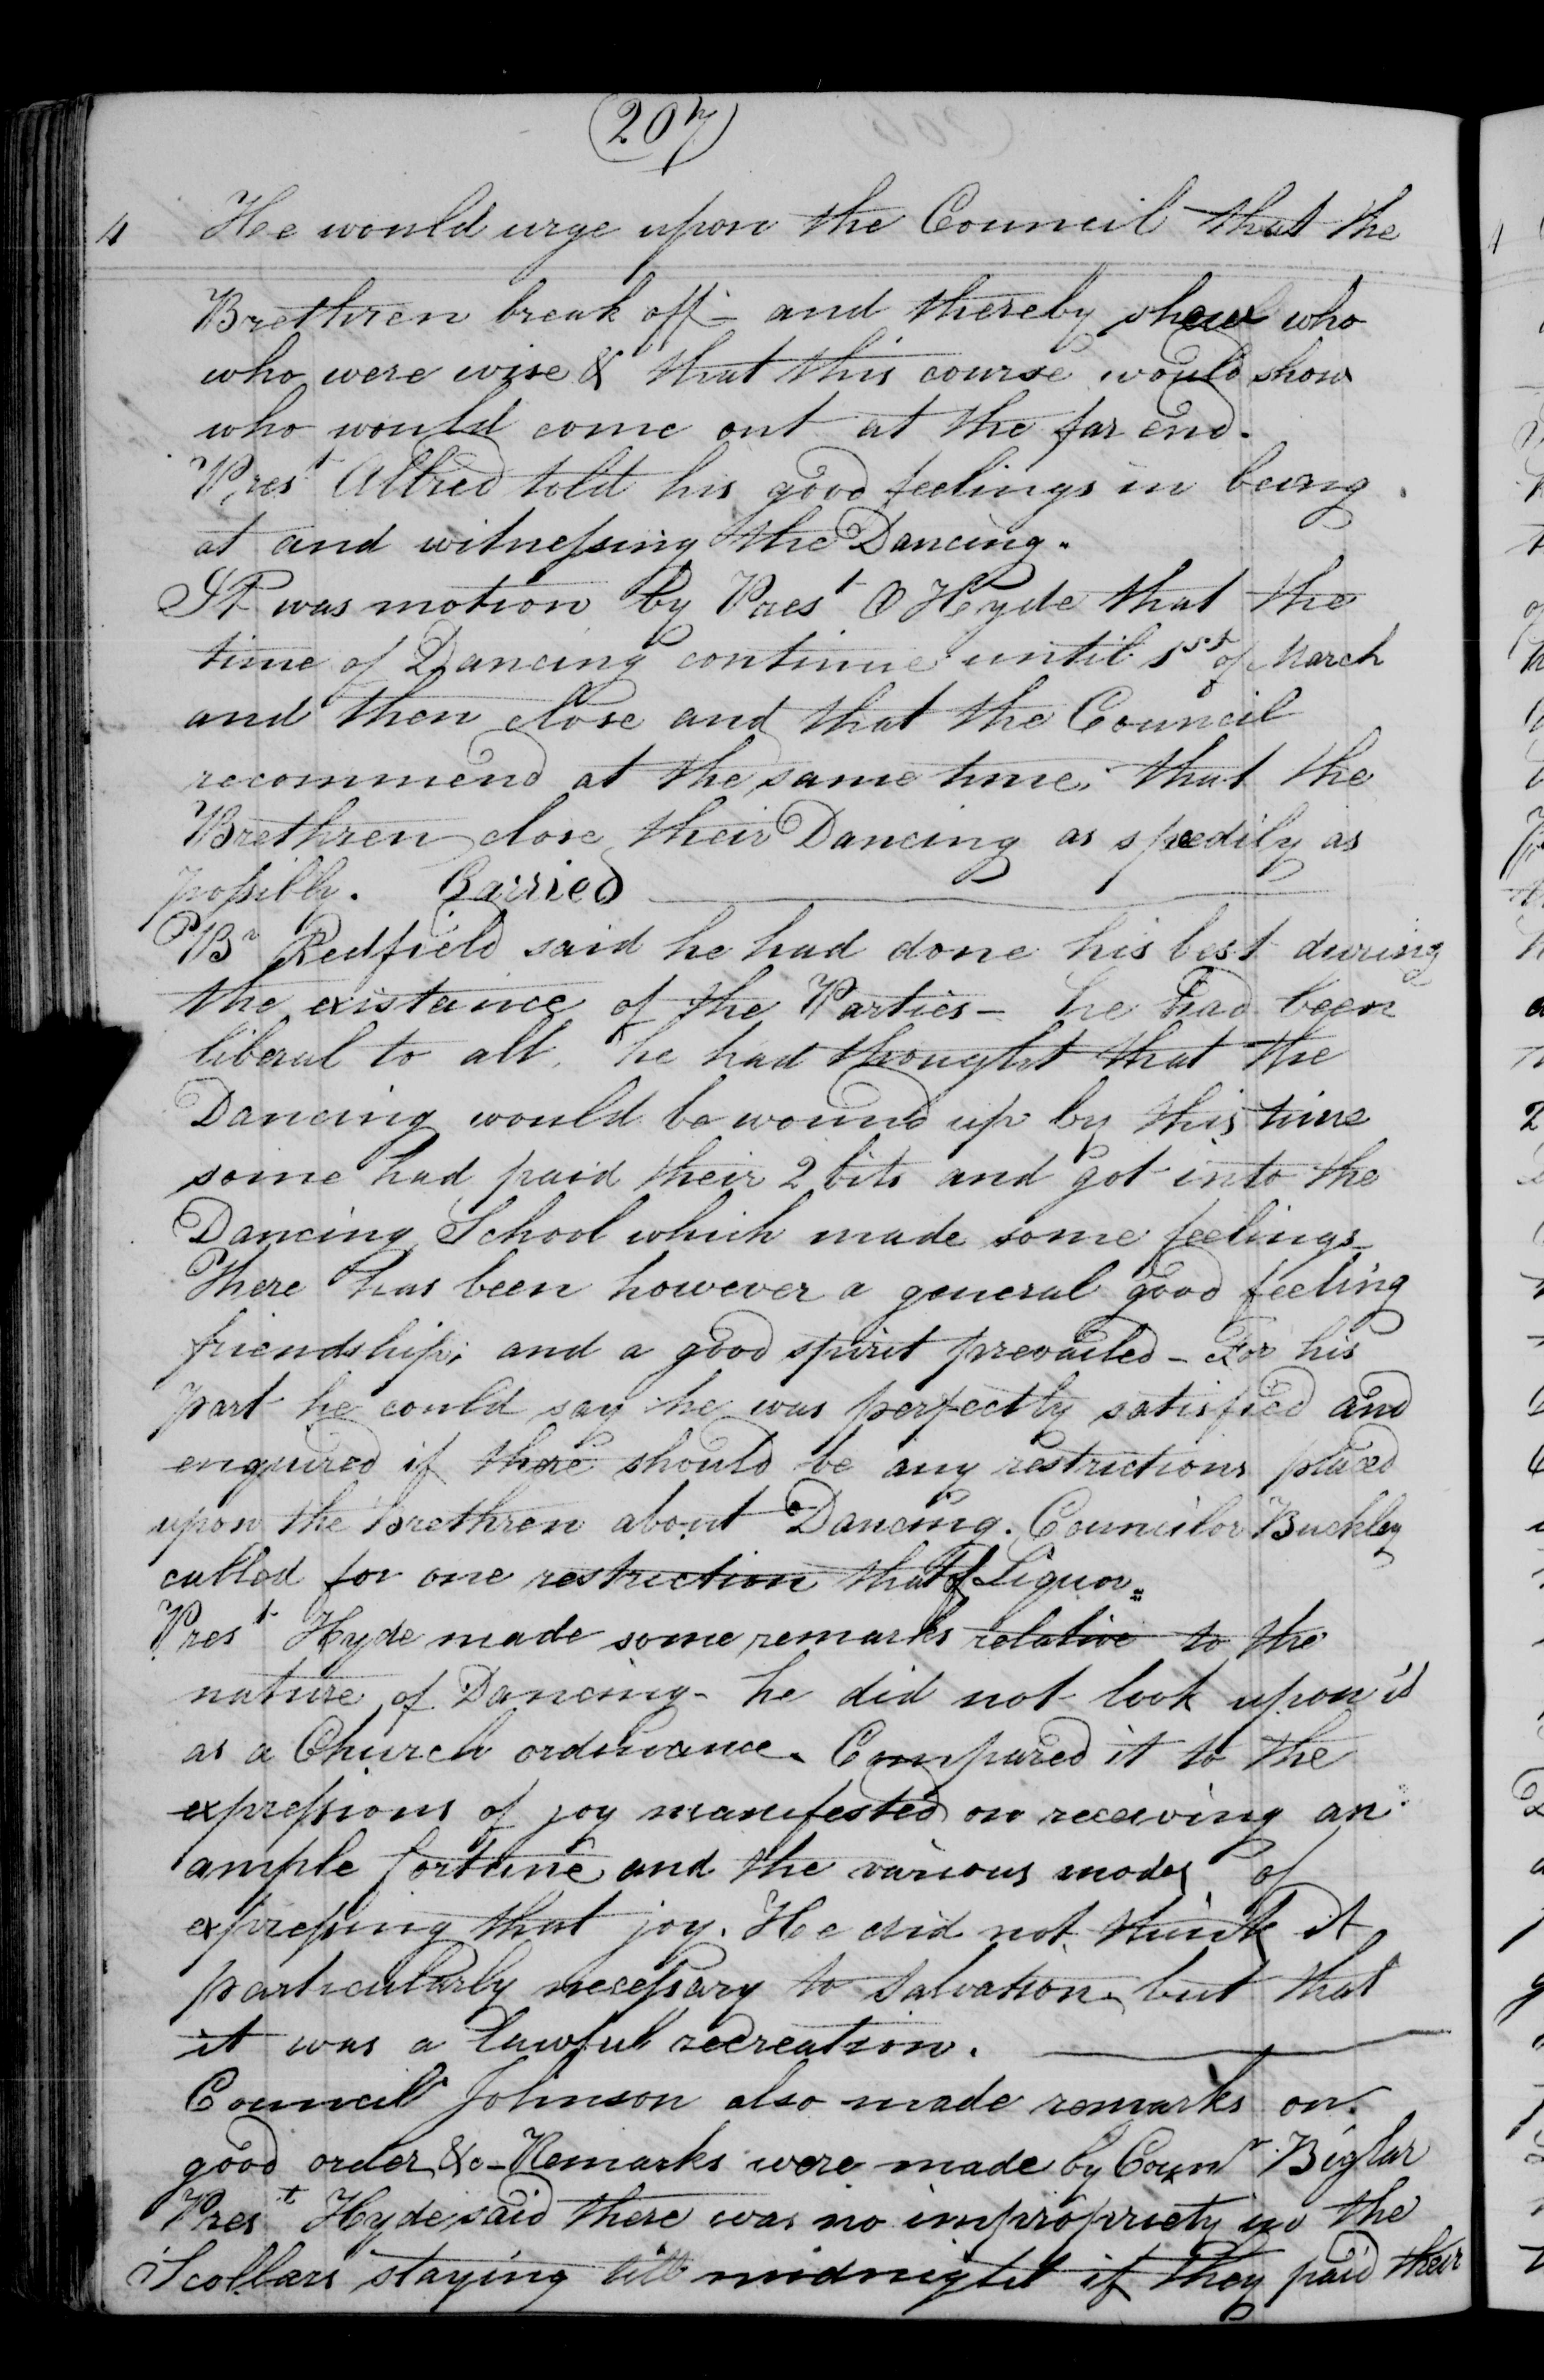 (207)
4 He would urge upon the Council that the
Brethren break off – and thereby shew who
who were wise & that this course would show
who would come out at the far end.
Prest Allred told his good feelings in being
at and witnessing the Dancing.
It was motion by Prest O Hyde that the
time of Dancing continue until 1st of March
and then close and that the Council
recommend at the same time that the
Brethren close their Dancing as speedily as
possibly. Carried
Br Redfield said he had done his best during
the existance of the Parties – he had been
liberal to all. he had thought that the
Dancing would be wound up by this time
some had paid their 2 bits and got into the
Dancing School which made some feelings
There has been however a general good feeling
friendship, and a good spirit prevailed – For his
part he could say he was perfectly satisfied and
enquired if there should be any restrictions placed
upon the Brethren about Dancing. Councilor Buckley
called for one restriction that of Liquor.
Prest Hyde made some remarks relative to the
nature of Dancing – he did not look upon it
as a Church ordinance. Compared it to the
expressions of joy manifested on receiving an
ample fortune and the various modes of
expressing that joy. He did not think it
particularly necessary to salvation but that
it was a lawful recreation.
Councilr Johnson also made remarks on
good order &c – Remarks were made by Counr Biglar
Prest Hyde said there was no impropriety in the
Scollars staying till midnight if they paid their